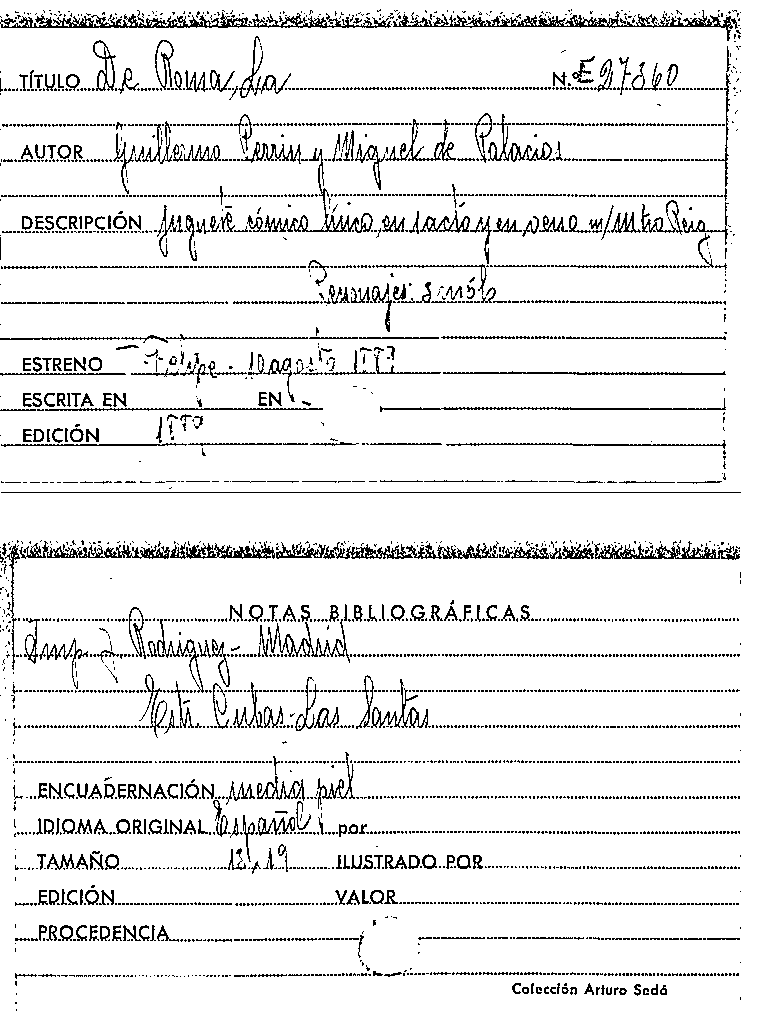 TÍTULO De Roma, La N. E 27360
AUTOR Guillermo Perrin y Miguel de Palacios
DESCRIPCIÓN juguete cómico lírico, en 1 acto y en verso m/ Mtro Reig
Personajes:
ESTRENO Felipe - 10 agosto
ESCRITA EN EN
EDICIÓN
NOTAS BIBLIOGRÁFICAS
Imp J. Rodriguez - Madrid
Estr. Cubas - Las Santas
ENCUADERNACIÓN media piel
IDIOMA ORIGINAL Español por
TAMAÑO 13 19 ILUSTRADO POR
EDICIÓN VALOR
PROCEDENCIA
Colección Arturo Sedó